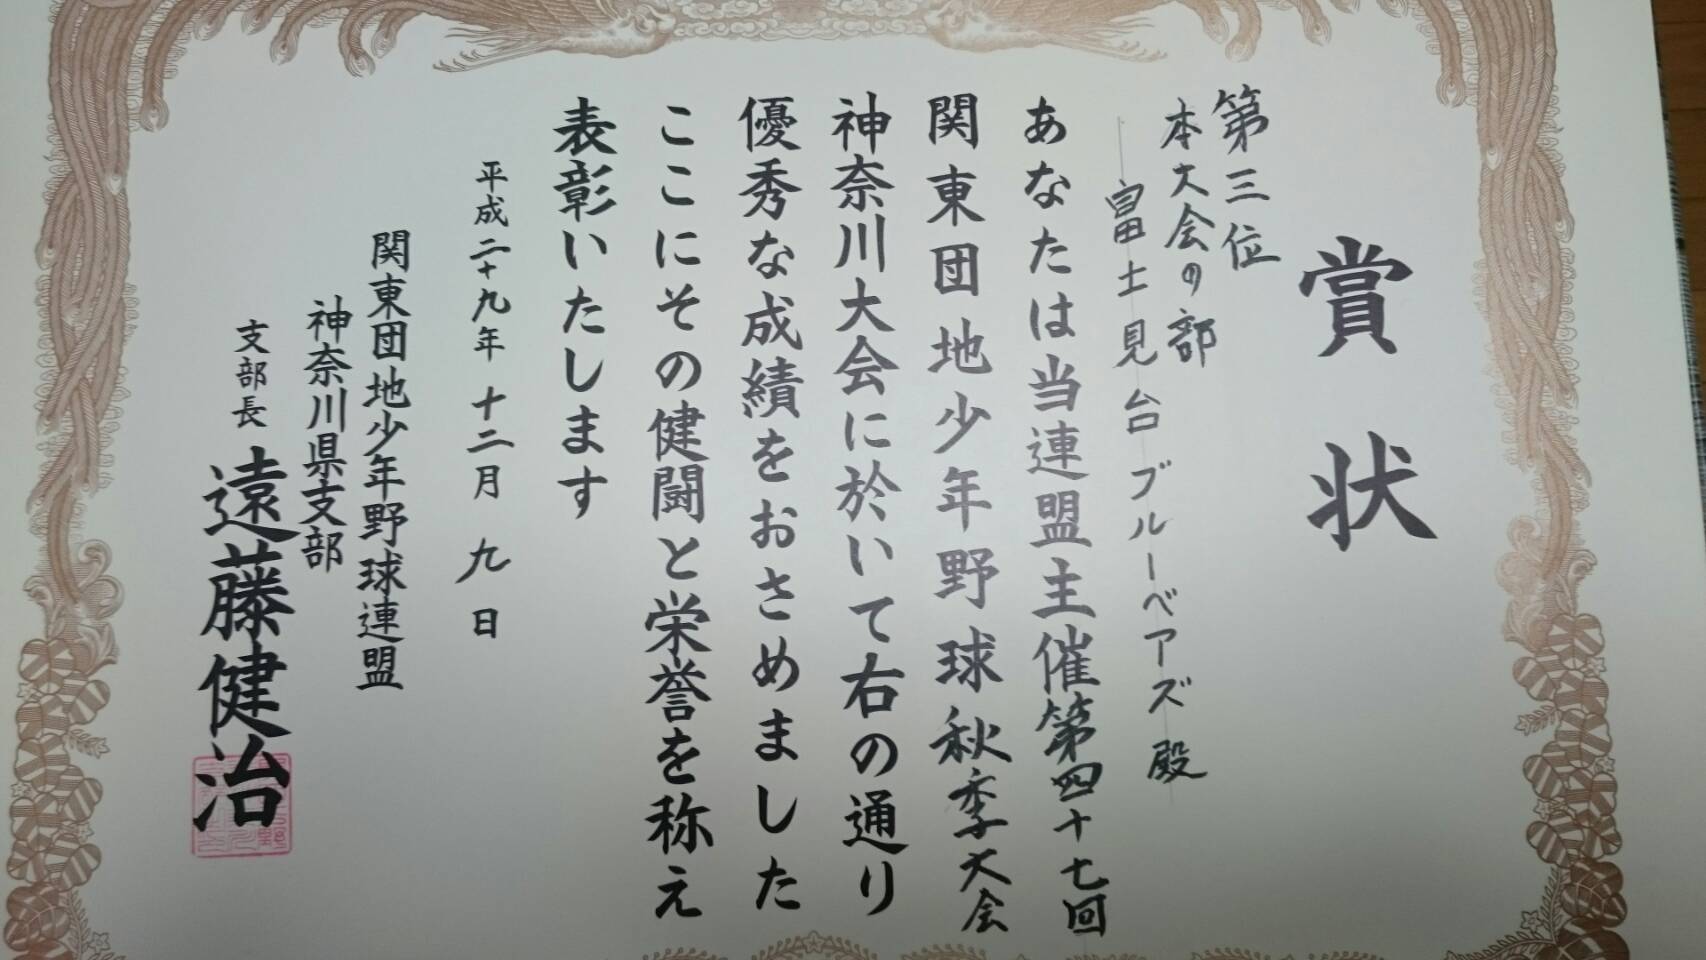 賞状
第三位
本大会の部
富士見台ブルーベアズ殿
あなたは当連盟主催第四十七回
関東団地少年野球秋季大会
神奈川大会に於いて右の通り
優秀な成績をおさめました
ここにその健闘と栄誉を称え
表彰いたします
平成二十九年十二月九日
関東団地少年野球連盟
神奈川県支部
支部長 遠藤健治